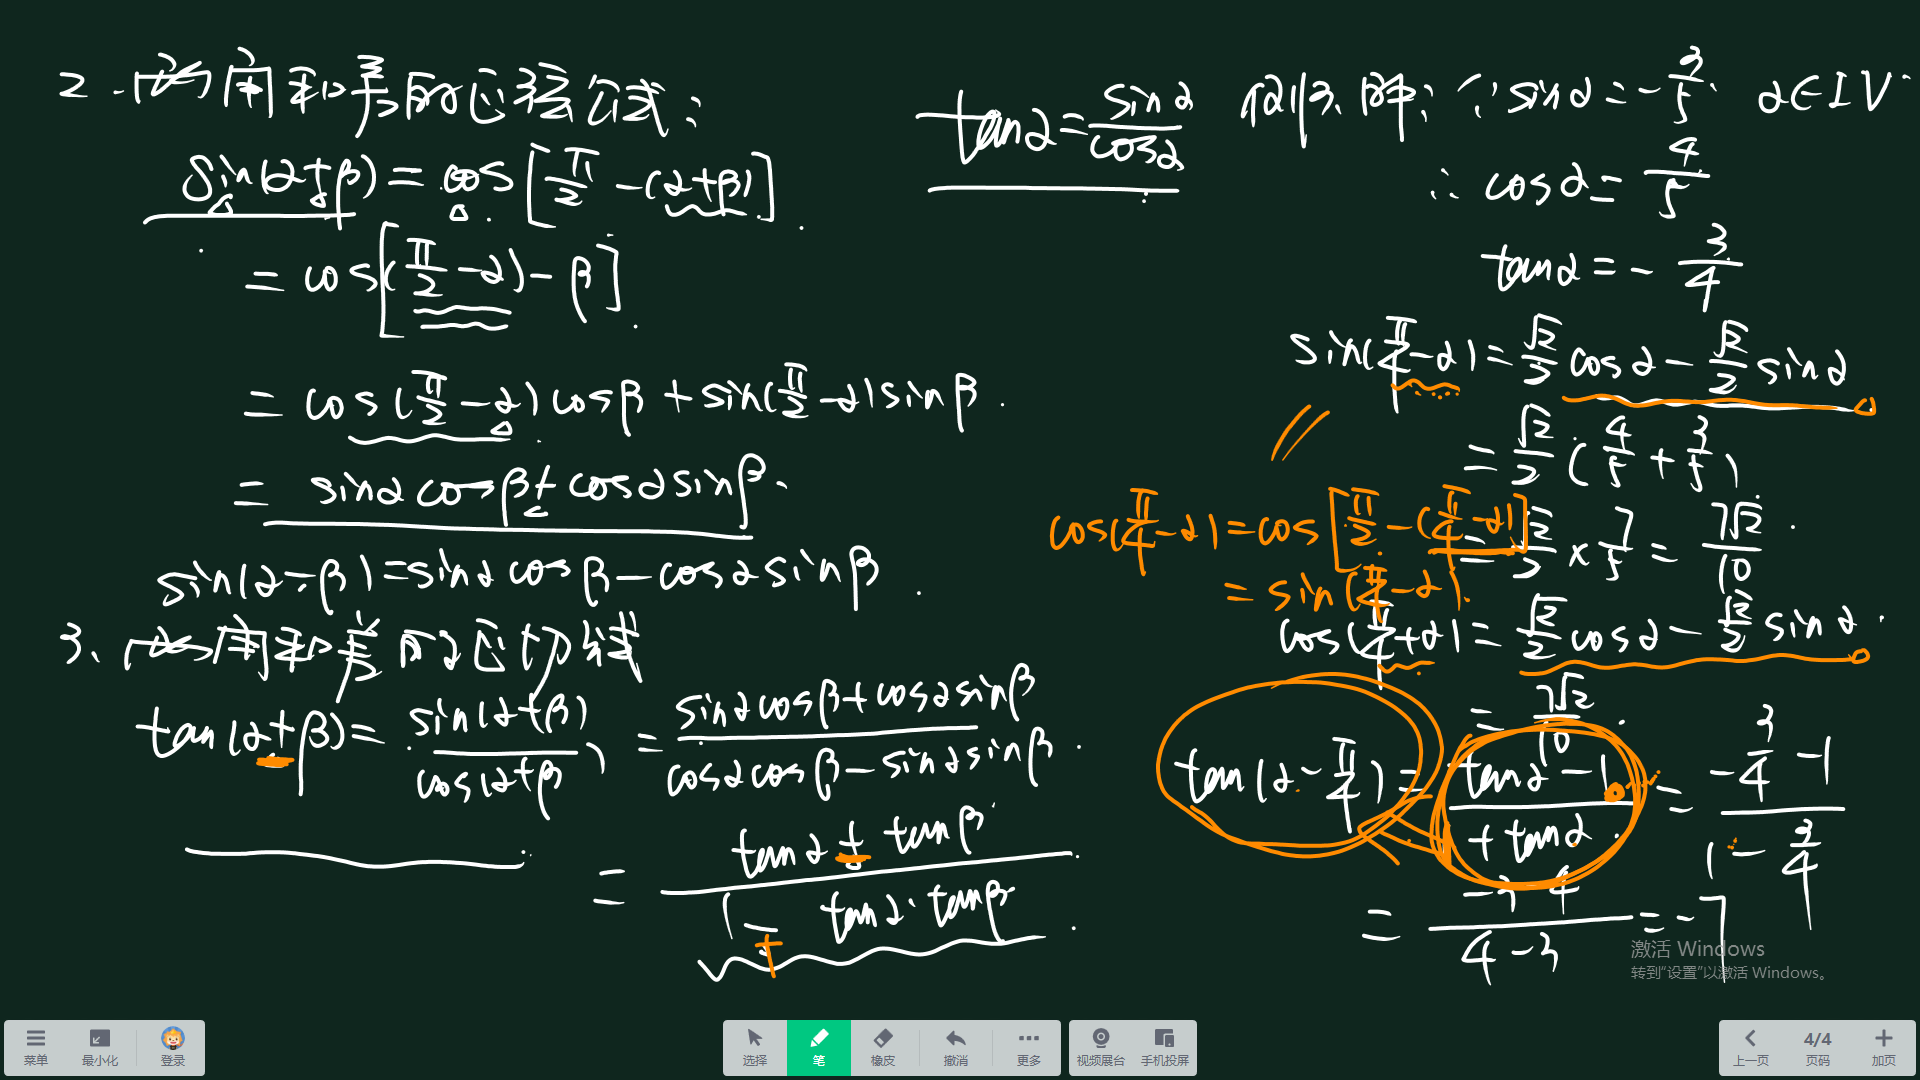 2. 两角和与差的正弦公式:
sin(α+β) = cos[π/2 -(α+β)]
= cos[(π/2 -α)-β]
= cos(π/2 -α)cosβ + sin(π/2 -α)sinβ
= sinαcosβ + cosαsinβ.
sin(α-β)=sinαcosβ-cosαsinβ
3、两角和与差的正切公式
tan(α±β)= sin(α+β)/cos(α+β) = (sinαcosβ+cosαsinβ)/(cosαcosβ-sinαsinβ)
= (tanα±tanβ)/(1∓tanα·tanβ)
tanα=sinα/cosα
例3、解: ∵ sinα=-3/5. α∈IV
∴ cosα=4/5
tanα=-3/4
sin(π/4-α)=√2/2 cosα-√2/2 sinα
=√2/2(4/5+3/5)
=√2/2×7/5=7√2/10
cos(π/4-α)=cos[π/2-(π/4-α)]
=sin(π/4-α).
cos(π/4+α)=√2/2 cosα-√2/2 sinα
=7√2/10
tan(α-π/4)=(tanα-1)/(+tanα)=(-3/4-1)/(1-3/4)
=(-3-4)/(4-3)=-7
激活 Windows
转到“设置”以激活 Windows。
菜单 最小化 登录 选择 笔 橡皮 撤消 更多 视频展台 手机投屏 上一页 4/4 页码 加页